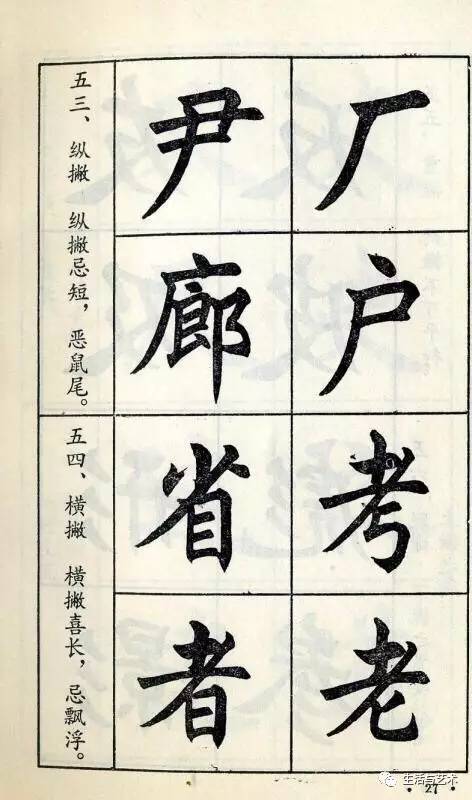 厂户
尹廊
五三、纵撇 纵撇忌短，恶鼠尾。
考老
省者
五四、横撇 横撇喜长，忌飘浮。
生活与艺术
·27·